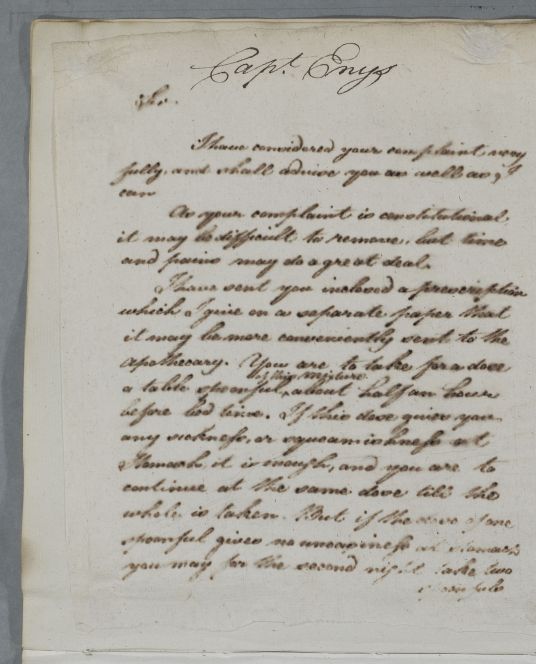 Capt. Enys
Sir.
I have considered your complaint very
fully, and shall advise you as well as, I
can
As your complaint is constitutional
it may be difficult to remove, but time
and pains may do a great deal.
I have sent you inclosed a prescription
which I give on a separate paper that
it may be more conveniently sent to the
Apothecary. You are to take for a dose
of this mixture
a table spoonful, about half an hour
before bed time. If this dose gives you
any sickness, or squeamishness at
Stomach, it is enough, and you are to
continue at the same dose till the
whole is taken. But if the dose of one
spoonful gives no uneasiness at stomach
you may for the second night take two
spoonfuls